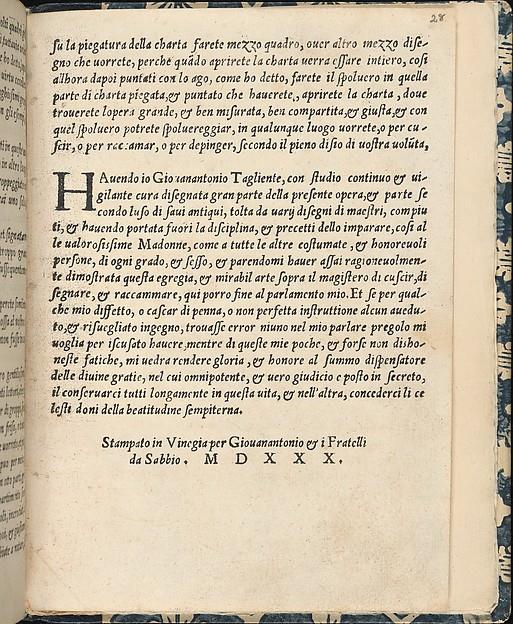 28
su la piegatura della charta farete mezzo quadro, ouer altro mezzo dise-
gno che uorrete, perche quãdo aprirete la charta uerra essare intiero, cosi
allhora dapoi puntati con lo ago, come ho detto, farete il spoluero in quella
parte di charta piegata,& puntato che hauerete, aprirete la charta, doue
trouerete lopera grande, & ben misurata, ben compartita,& giusta,& con
quel spoluero potrete spoluereggiar, in qualunque luogo uorrete,o per cu-
scir, o per raccamar, o per depinger, secondo il pieno disio di uostra volũta,
HAuendo io Giouanantonio Tagliente, con studio continuo & ui-
gilante cura disegnata gran parte della presente opera,& parte se
condo luso di saui antiqui, tolta da uarij disegni di maestri, compiu
ti, & hauendo portata fuori la disciplina, & precetti dello imparare, cosi al
le ualorosissime Madonne, come a tutte le altre costumate, & honoreuoli
persone, di ogni grado, & sesso, & parendomi hauer assai ragioneuolmen-
te dimostrata questa egregia, & mirabil arte sopra il magistero di cuscir,di
segnare, & raccammare, qui porro fine al parlamento mio. Et se per qual-
che mio diffetto, o cascar di penna, o non perfetta instruttione alcun auedu-
to,& risuegliato ingegno, trouasse error niuno nel mio parlare pregolo mi
uoglia per iscusato hauere,mentre di queste mie poche, & forse non disho-
neste fatiche, mi uedra rendere gloria , & honore al summo dispensatore
delle diuine gratie, nel cui omnipotente, & uero giudicio e posto in secreto,
il conseruarci tutti longamente in questa uita, & nell'altra, concederci li ce
lesti doni della beatitudine sempiterna.
Stampato in Vinegia per Giouanantonio & i Fratelli
da Sabbio. M D X X X.